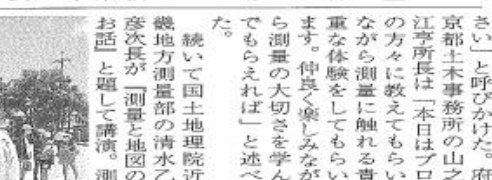 さい」と呼びかけた。府
京都土木事務所の山之
江亨所長は「本日はプロ
の方々に教えてもらい
ながら測量に触れる貴
重な体験をしてもらい
ます。仲良く楽しみなが
ら測量の大切さを学ん
でもらえれば」と述べ
た。
続いて国土地理院近
畿地方測量部の清水乙
彦次長が『測量と地図の
お話』と題して講演。測